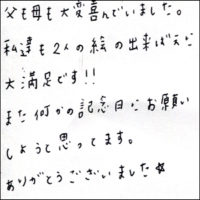 父も母も大変喜んでいました。
私達も2人の絵の出来ばえに
大満足です!!
また何かの記念日にお願い
しようと思ってます。
ありがとうございました☆